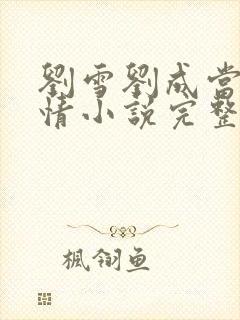 劉雪劉成當
情小說完整
楓翎魚